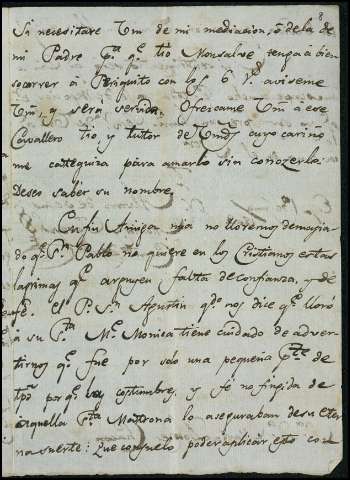 Si necesitare Vm de mi mediacion, o de las de
mi Padre pa qe tio Monsalve tenga à bien
socorrer à Periquito con los 6 rs aviseme
Vm, y será servida. Ofrezcame Vm a ese
Cavallero tio y tuttor de Vmd cuyo cariño
me cattequiza para amarlo sin conozerlo.
Deseo saber su nombre.
En fin Amiga mia no lloremos demasia-
do qe Sn Pablo no quiere en los Cristianos estas
lagrimas qe arguyen falta de confianza, y de
fe. el P. Sn Agustin qe nos dice qe lloró
a su Sta Me Monica tiene cuidado de adver-
tirnos qe fue por sólo una pequeña pte de
tpo porqe las costumbres, y fé no fingida de
aquella Sta Mattrona lo aseguraban de su eter-
na suerte: Que consuelo poder aplicar esto con